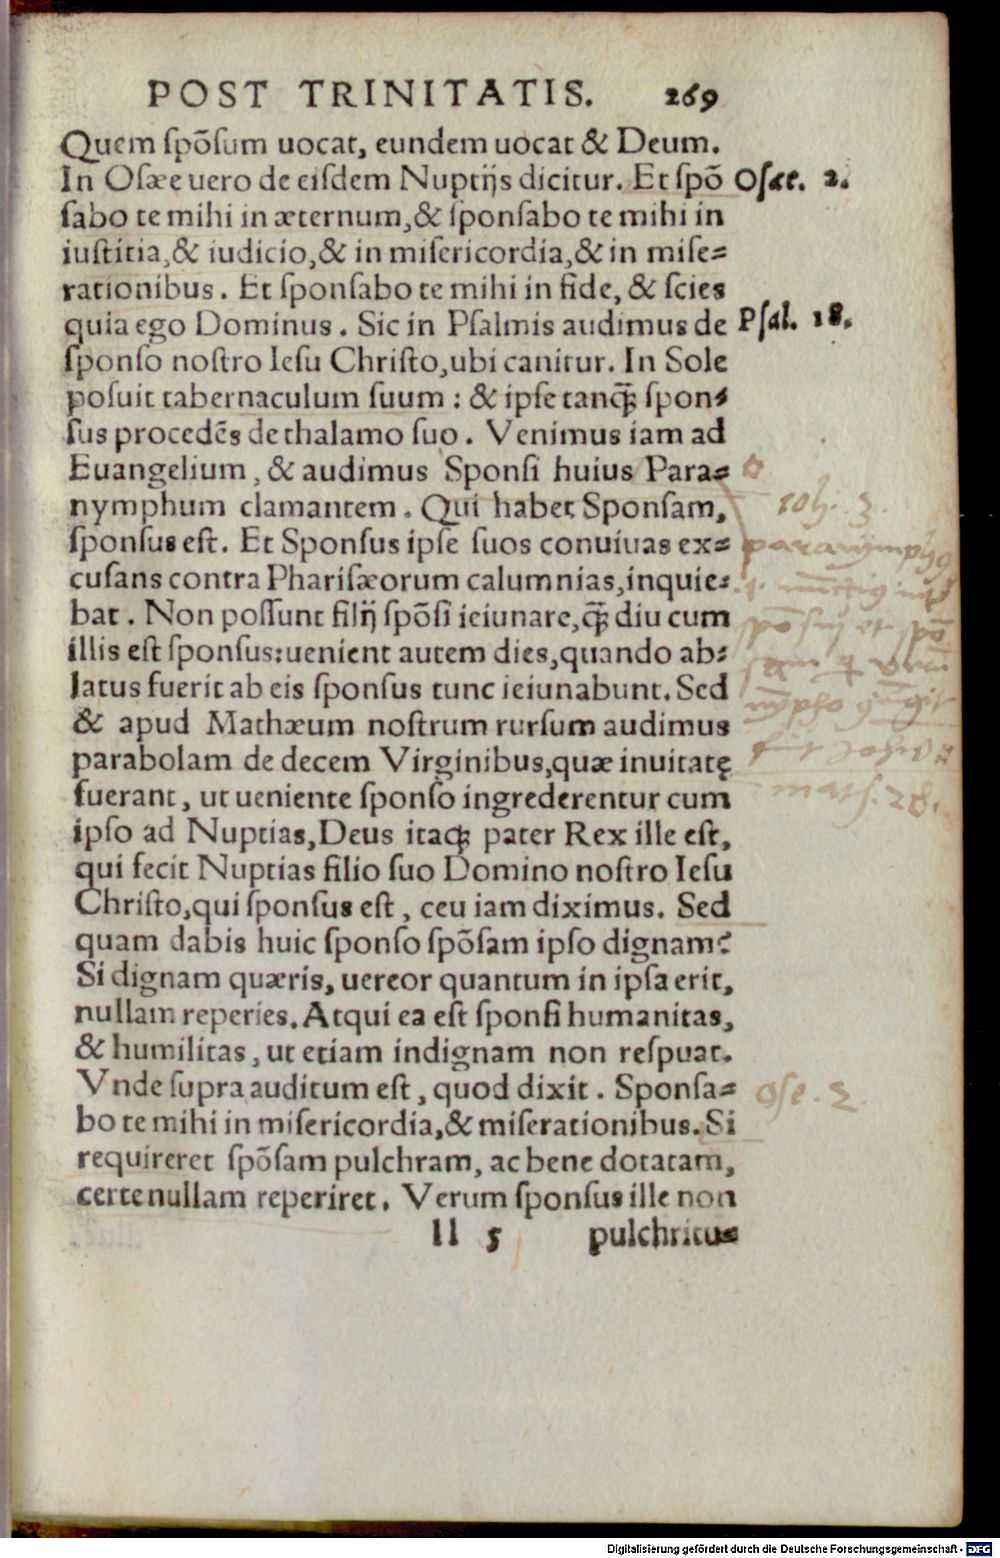 POST TRINITATIS. 269
Quem spõsum uocat, eundem uocat & Deum.
In Osæe uero de eisdem Nuptijs dicitur. Et spõ
Osee. 2.
sabo te mihi in æternum, & sponsabo te mihi in
iustitia, & iudicio, & in misericordia, & in mise=
rationibus. Et sponsabo te mihi in fide, & scies
quia ego Dominus. Sic in Psalmis audimus de
Psal. 18.
sponso nostro Iesu Christo, ubi canitur. In Sole
posuit tabernaculum suum : & ipse tanq̃ spon=
sus procedẽs de thalamo suo. Venimus iam ad
Euangelium, & audimus Sponsi huius Para=
nymphum clamantem. Qui habet Sponsam,
Ioh. 3.
sponsus est. Et Sponsus ipse suos conuiuas ex=
paranymphus
cusans contra Pharisæorum calumnias, inquie=
bat. Non possunt filij spõsi ieiunare, q̃ diu cum
illis est sponsus: uenient autem dies, quando ab=
latus fuerit ab eis sponsus tunc ieiunabunt. Sed
& apud Mathæum nostrum rursum audimus
parabolam de decem Virginibus, quæ inuitatę
fuerant, ut ueniente sponso ingrederentur cum
math. 25.
ipso ad Nuptias, Deus itaq; pater Rex ille est,
qui fecit Nuptias filio suo Domino nostro Iesu
Christo, qui sponsus est, ceu iam diximus. Sed
quam dabis huic sponso spõsam ipso dignam?
Si dignam quæris, uereor quantum in ipsa erit,
nullam reperies. Atqui ea est sponsi humanitas,
& humilitas, ut etiam indignam non respuat.
Vnde supra auditum est, quod dixit. Sponsa=
Ose. 2.
bo te mihi in misericordia, & miserationibus. Si
requireret spõsam pulchram, ac bene dotatam,
certe nullam reperiret. Verum sponsus ille non
ll 5 pulchritu=
Digitalisierung gefördert durch die Deutsche Forschungsgemeinschaft - DFG